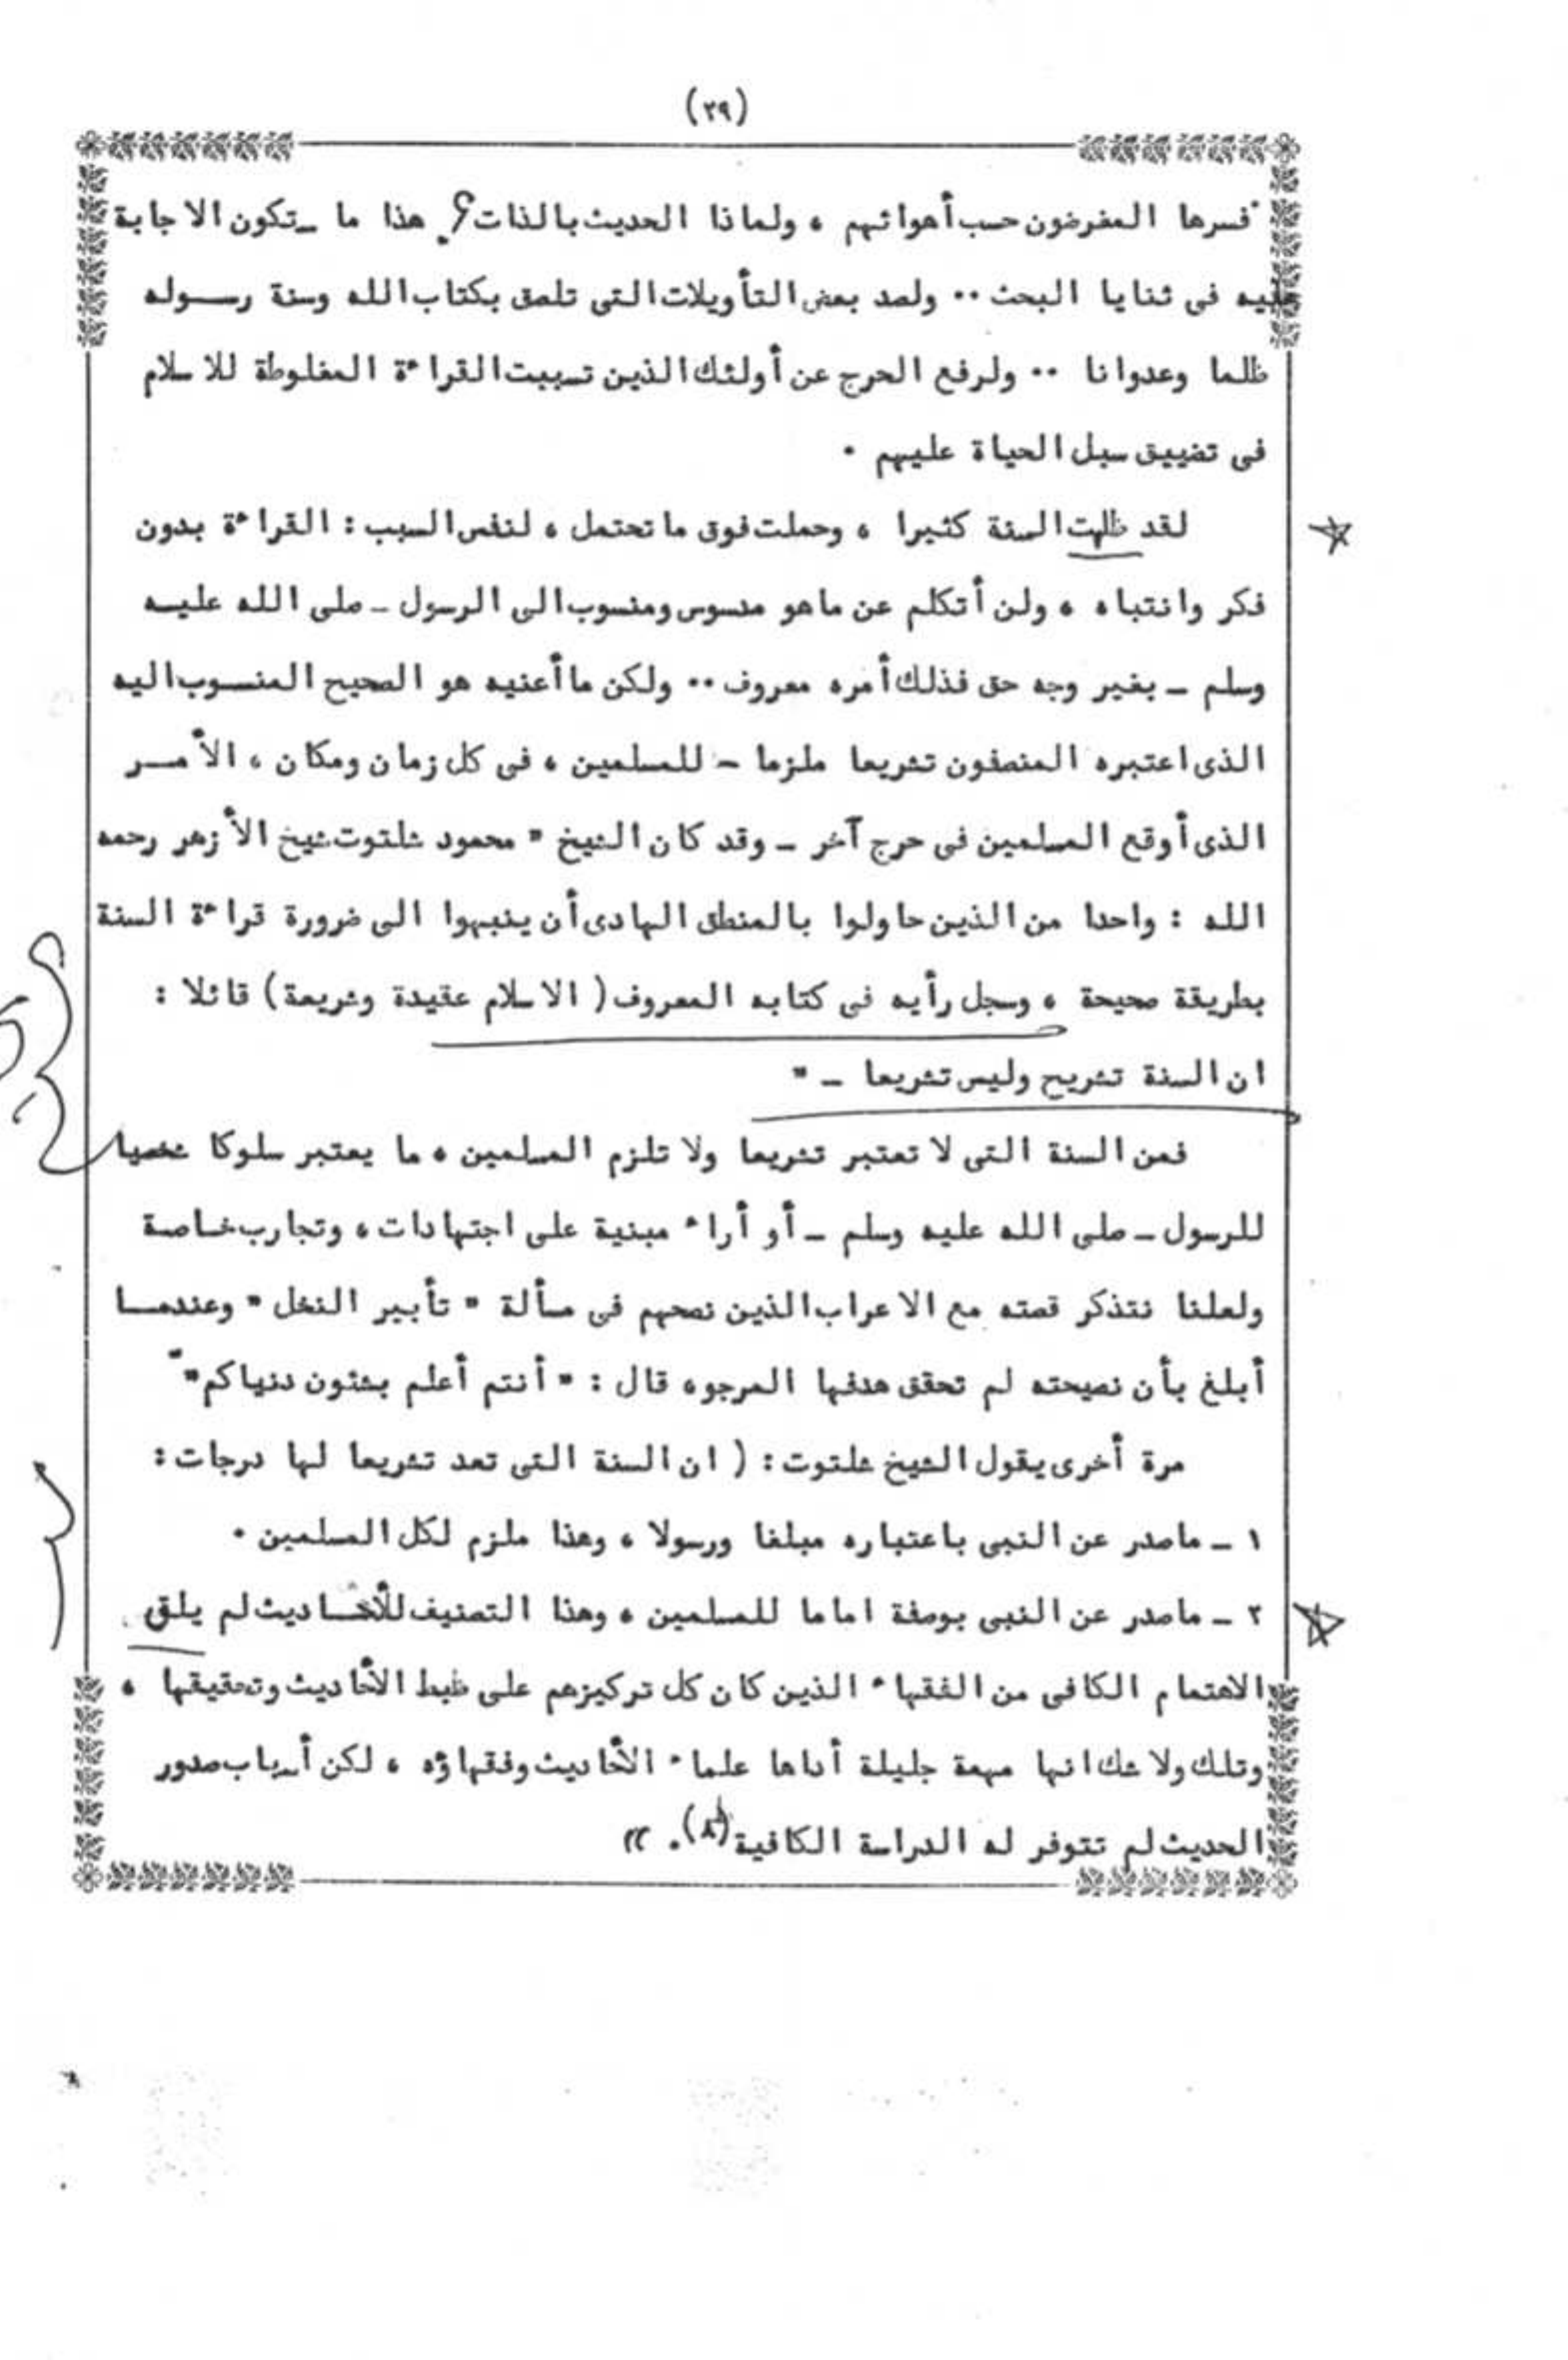 (٢٩)
فسرها المغرضون حسب أهوائهم ، ولماذا الحديث بالذات ؟. هذا ما ستكون الاجابة
عليه فى ثنايا البحث .. ولصد بعض التأويلات التى تلصق بكتاب الله وسنة رســوله
ظلما وعدوانا .. ولرفع الحرج عن أولئك الذين تسببت القراءة المغلوطة للاسلام
فى تضييق سبل الحياة عليهم .
لقد ظلمت السنة كثيرا ، وحملت فوق ما تحتمل ، لنفس السبب : القراءة بدون
فكر وانتباه ، ولن أتكلم عن ماهو مدسوس ومنسوب الى الرسول ــ صلى الله عليــه
وسلم ــ بغير وجه حق فذلك أمره معروف .. ولكن ما أعنيه هو الصحيح المنســوب اليه
الذى اعتبره المنصفون تشريعا ملزما ــ للمسلمين ، فى كل زمان ومكان ، الأمــر
الذى أوقع المسلمين فى حرج آخر ــ وقد كان الشيخ " محمود شلتوت شيخ الأزهر رحمه
الله : واحدا من الذين حاولوا بالمنطق الهادى أن ينبهوا الى ضرورة قراءة السنة
بطريقة صحيحة ، وسجل رأيه فى كتابه المعروف ( الاسلام عقيدة وشريعة ) قائلا :
ان السنة تشريح وليس تشريعا ــ "
فمن السنة التى لا تعتبر تشريعا ولا تلزم المسلمين ، ما يعتبر سلوكا شخصيا
للرسول ــ صلى الله عليه وسلم ــ أو أراء مبنية على اجتهادات ، وتجارب خــاصة
ولعلنا نتذكر قصته مع الاعراب الذين نصحهم فى مسألة " تأبير النخل " وعندمــا
أبلغ بأن نصيحته لم تحقق هدفها المرجوه قال : " أنتم أعلم بشئون دنياكم "
مرة أخرى يقول الشيخ شلتوت : ( ان السنة التى تعد تشريعا لها درجات :
١ ــ ماصدر عن النبى باعتباره مبلغا ورسولا ، وهذا ملزم لكل المسلمين .
٢ ــ ماصدر عن النبى بوصفة اماما للمسلمين ، وهذا التصنيف للأحــاديث لم يلق
الاهتمام الكافى من الفقهاء الذين كان كل تركيزهم على ظبط الأحاديث وتحقيقها ،
وتلك ولا شك انها مهمة جليلة أداها علماء الأحاديث وفقهاؤه ، لكن أسباب صدور
الحديث لم تتوفر له الدراسة الكافية . "